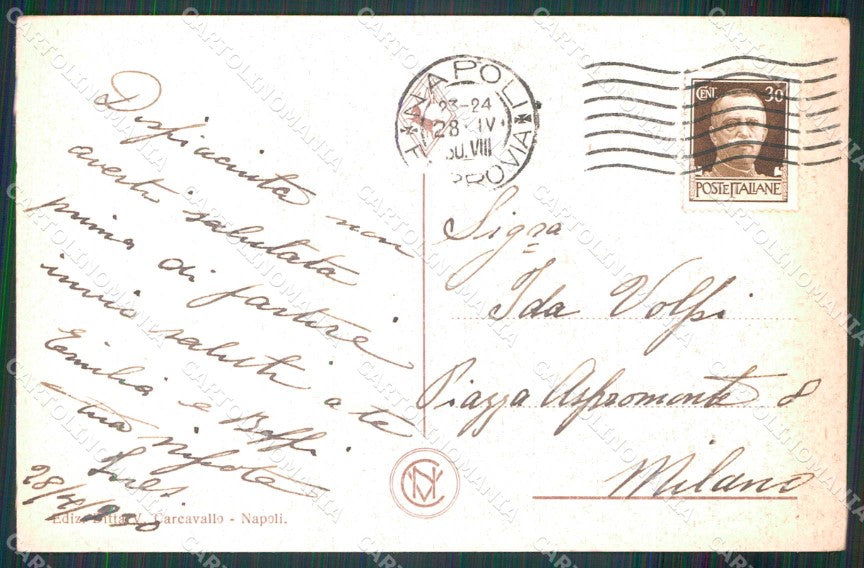 Dispiaciuta non
averti salutata
prima di partire
invio saluti a te
Emilia e Beppi
tua nipote
Ines
28/4/930
Ediz. Ditta V. Carcavallo - Napoli.
NAPOLI
FERROVIA
23-24
28 IV
30.VIII
CENT 30
POSTE ITALIANE
Sigra
Ida Volpi
Piazza Aspromonte 8
Milano
CARTOLINOMANIA